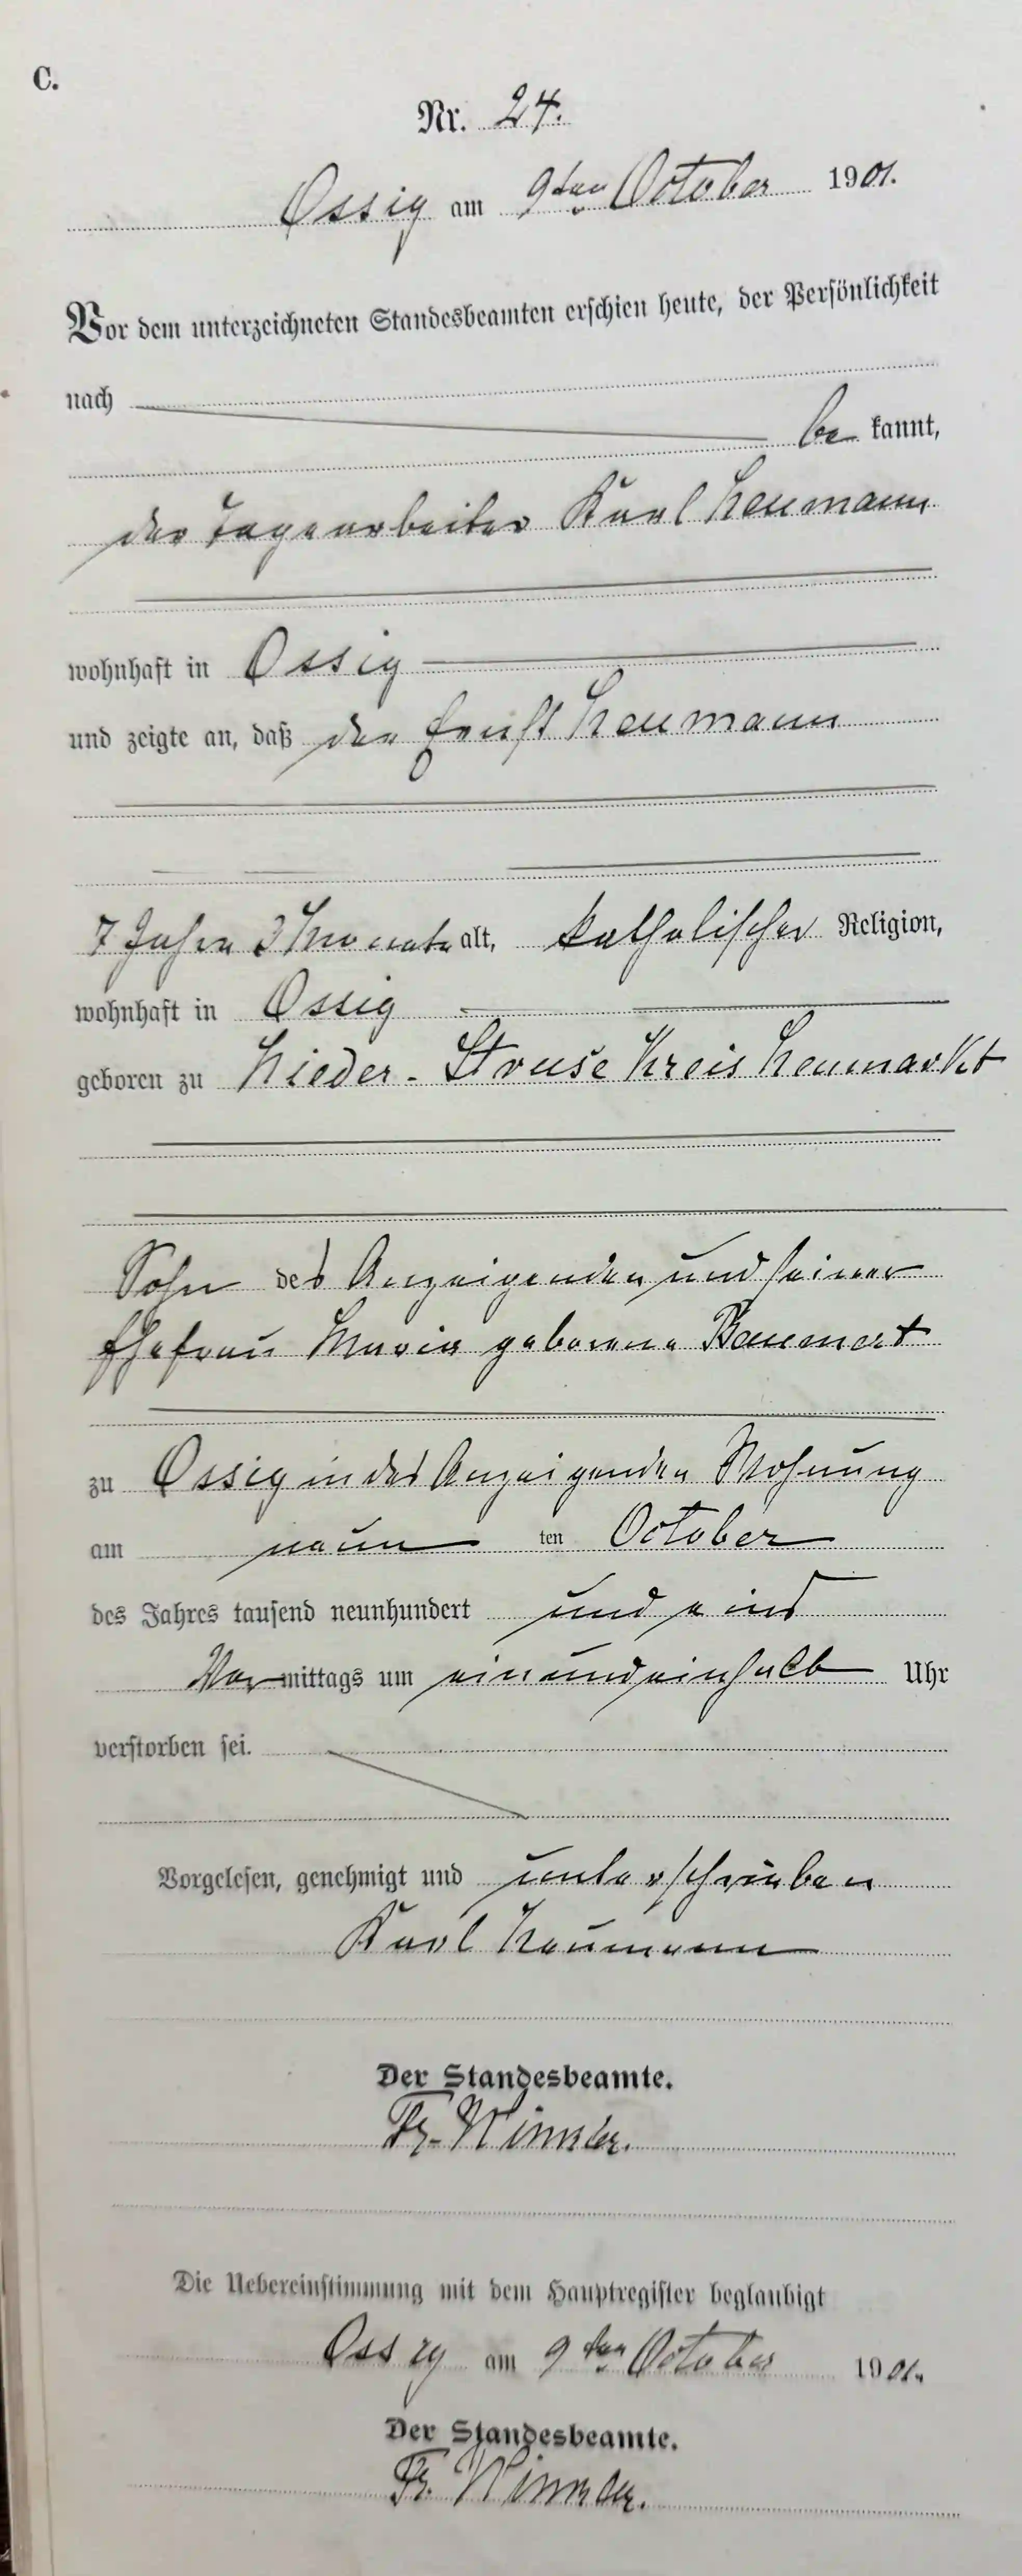 C.
Nr. 24.
Ossig am 9ten October 1901.
Vor dem unterzeichneten Standesbeamten erschien heute, der Persönlichkeit
nach
be kannt,
der Tagearbeiter Karl Neumann
wohnhaft in Ossig
und zeigte an, daß der Ernst Neumann
7 Jahre 3 Monate alt, katholischer Religion,
wohnhaft in Ossig
geboren zu Nieder-Struse Kreis Neumarkt
Sohn des Anzeigenden und seiner
Ehefrau Maria geborene Baumert
zu Ossig in des Anzeigenden Wohnung
am neun ten October
des Jahres tausend neunhundert und eins
Vormittags um ein und einhalb Uhr
verstorben sei.
Vorgelesen, genehmigt und unterschrieben
Karl Neumann
Der Standesbeamte.
Fr.
Die Uebereinstimmung mit dem Hauptregister beglaubigt
Ossig am 9ten October 1901.
Der Standesbeamte.
Fr.